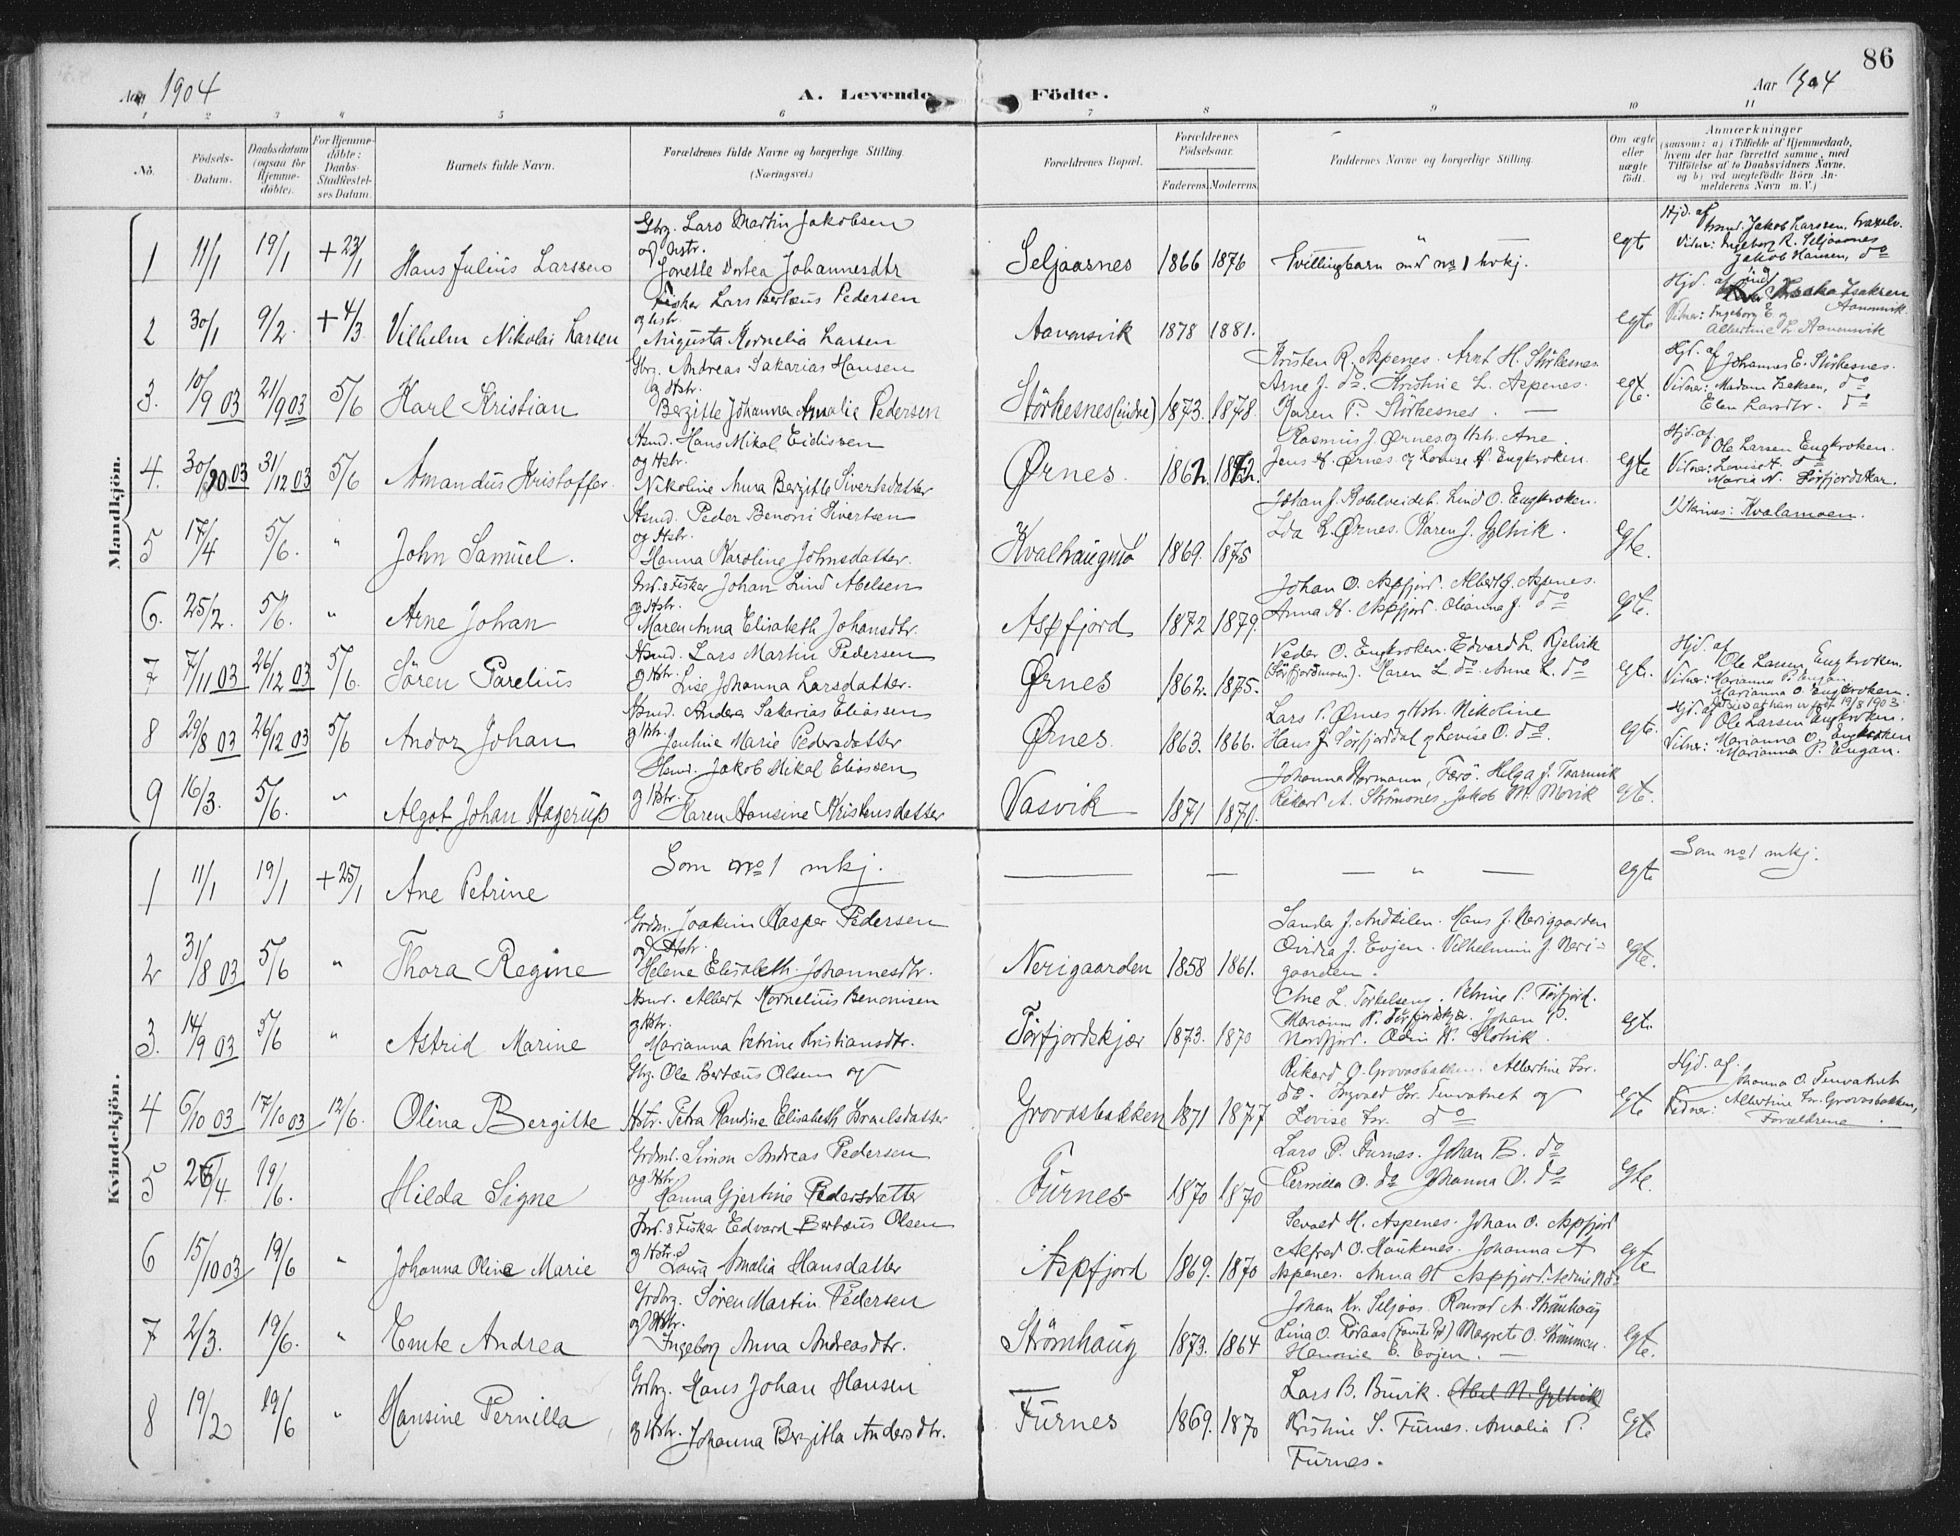 86
Aar 1904
A. Levende Födte.
Aar 1904
1 2 3 4 5 6 7 8 9 10 11
No.
Födsels-Datum.
Daabsdatum (ogsaa for Hjemmedöbte).
For Hjemmedöbte: Daabs-Stadfæstelses Datum.
Barnets fulde Navn.
Forældrenes fulde Navne og borgerlige Stilling. (Næringsvei.)
Forældrenes Bopæl.
Forældrenes Födselsaar.
Faderens. Moderens.
Faddernes Navne og borgerlige Stilling.
Om ægte eller uægte födt.
Anmærkninger
(saasom: a) i Tilfælde af Hjemmedaab, hvem der har forrettet samme, med Tilföielse af to Daabsvidners Navne, og b) ved uægtefödte Börn Anmelderens Navn m. V.)
Mandkjön.
1 11/1 19/1 +23/1 Hans Julius Larssen
Gbrg. Lars Martin Jakobsen
og Hstr.
Jonette Dortea Johannesdtr
Seljaasnes 1866 1876 Tvillingbarn med no 1 kvkj. egte
Hjd. af
Jakob Larssen,
Vidner: Ingeborg R. Seljaasnes
Jakob Hansen, do
2 30/1 9/2. +4/3. Vilhelm Nikolai Larsen
Fisker Lars Bertæus Pedersen
og Hstr.
Augusta Kornelia Larsen
Aavensvik 1878 1881. egte
Hjd. af
Isaksen
Vidner: Ingeborg E. og
Albertine L. Aavensvik
3. 10/9 03 21/9 03 5/6 Karl Kristian
Gbrg. Andreas Sakarias Hansen
og Hstr.
Bergitte Johanna Amalie Pedersen
Störkesnes (indre) 1873. 1878.
Kristen R. Aspenes. Arnt H. Störkesnes.
Arne J. do. Kristine L. Aspenes.
Karen P. Störkesnes. —
egt.
Hjd. af Johannes E. Störkesnes.
Vidner: Madam Isaksen, do
Elen Larsdtr. do
4. 30/10 03 31/12 03 5/6 Amandus Kristoffer
Hsmd. Hans Mikal Eidissen
og Hstr.
Nikoline Anna Bergitte Sivertsdatter
Ørnes. 1862. 1872.
Rasmus J. Ørnes og Hstr. Ane.
Jens A. Ørnes og Lovise A. Engkroken.
egte
Hjd. af Ole Larsen Engkroken.
Vidner: Lovise A. do
Maria N. Törfjordskar.
5 17/4 5/6. " John Samuel.
Hsmd. Peder Benoni Sivertsen
og Hstr.
Hanna Karoline Johnsdatter.
Kvalhaugmo 1869. 1875
Johan J. Lind O. Engkroken.
Ida L. Ørnes. Karen J. Gylvik.
egte.
: Kvalamoen.
6. 25/2. 5/6. " Arne Johan
Ind. & Fisker Johan Lind Abelsen
og Hstr.
Maren Anna Elisabeth Johansdtr.
Aspfjord 1872 1879.
Johan O. Aspfjord. Albert J. Aspenes.
Anna H. Aspfjord. Olianna J. do
egte.
7 7/11 03 26/12 03 5/6. Sören Parelius
Hsmd. Lars Martin Pedersen
og Hstr.
Lise Johanna Larsdatter.
Ørnes 1862. 1875.
Peder O. Engkroken. Edvard L. Kjelvik
. Karen L. do. Anne L. do
egt.
Hjd. af Ole Larsen Engkroken.
Vidner: Marianna P. Engan.
Marianna O. Engkroken.
8 29/8 03 26/12 03 5/6 Andor Johan
Hsmd. Anders Sakarias Eliassen
og Hstr.
Jentine Marie Pedersdatter
Ørnes. 1863. 1866.
Lars P. Ørnes og Hstr. Nikoline
Hans J. Törfjorddal og Lovise O. do.
egte.
Hjd. af Ole Larsen Engkroken.
Vidner: Marianna O. Engkroken
Marianna P. Engan.
9 16/3. 5/6. " Algot Johan Hagerup
Hsmd. Jakob Mikal Eliassen
og Hstr.
Karen Hansine Kristensdatter
Vasvik 1871 1871.
Johanna Normann, Færö. Helga J. Taarnvik
Rikard A. Strömsnes. Jakob M. Movik
egte.
Kvindekjön.
1 11/1 19/1 +25/1 Ane Petrine
Som no 1 mkj.
— — — " — egte
Som no 1 mkj.
2 31/8 03 5/6 " Thora Regine
Grdm. Joakim Kasper Pedersen
og Hstr.
Helene Elisabeth Johannesdtr.
Nerigaarden 1858 1861.
Sanda J. Andkilen. Hans J. Nerigaarden
J. Evjen. Vilhelmine J. Neri-
gaarden.
egte.
3. 14/9 03 5/6 " Astrid Marine
Hsmd. Albert Kornelius Benonisen
og Hstr.
Marianna Petrine Kristiansdtr.
Törfjordskjær 1873. 1870
Ane L. Torkelseng. Petrine P. Törfjord.
N. Törfjordskjær. Johan P.
Nordfjord. Odin N. Slotvik.
egt.
4 6/10 03 17/10 03 12/6. Olina Bergitte
Gbrg. Ole Bertæus Olsen og
Hstr. Petra Randine Elisabeth Israelsdatter
Grovasbakken 1871 1877
Rikard O. Grovasbakken. Albertine Isr.
do. Ingvald Isr. Tenvatnet og
Lovise Isr. do
egte
Hjd. af Johanna O. Tenvatnet
Vidner: Albertine Isr. Grovasbakken,
Forældrene.
5 26/4 19/6. Hilda Signe
Grdmd. Simon Andreas Pedersen
og Hstr.
Hanna Gjertine Pedersdatter
Furnes 1870 1870
Lars P. Furnes. Johan B. do
Pernilla O. do Johanna O. do
egte.
6 15/10 03 19/6 " Johanna Oline Marie
Ind. & Fisker Edvard Bertæus Olsen
og Hstr.
Laura Amalia Hansdatter
Aspfjord 1869. 1870
Sevald H. Aspenes. Johan O. Aspfjord
Alfred O. Haukenes. Johanna A
Aspenes. Anna H Aspfjord.
egte
7 2/3. 19/6. " Emte Andrea
Grdbrg. Sören Martin Pedersen
og Hstr.
Ingeborg Anna Andreasdtr.
Strömhaug 1873. 1864
Johan Kr. Seljaas. Konrad A. Strömhaug
Lina O. Röraas Magrete O. Strömmen.
E. Evjen. —
egte.
8 19/2 19/6 " Hansine Pernilla
Grdbrg. Hans Johan Hansen
og Hstr. Johanna Bergitta Andersdtr.
Furnes 1869. 1870
Lars B. Buvik. (Abel N. Gylvik)
Kristine S. Furnes. Amalia P.
Furnes.
egte